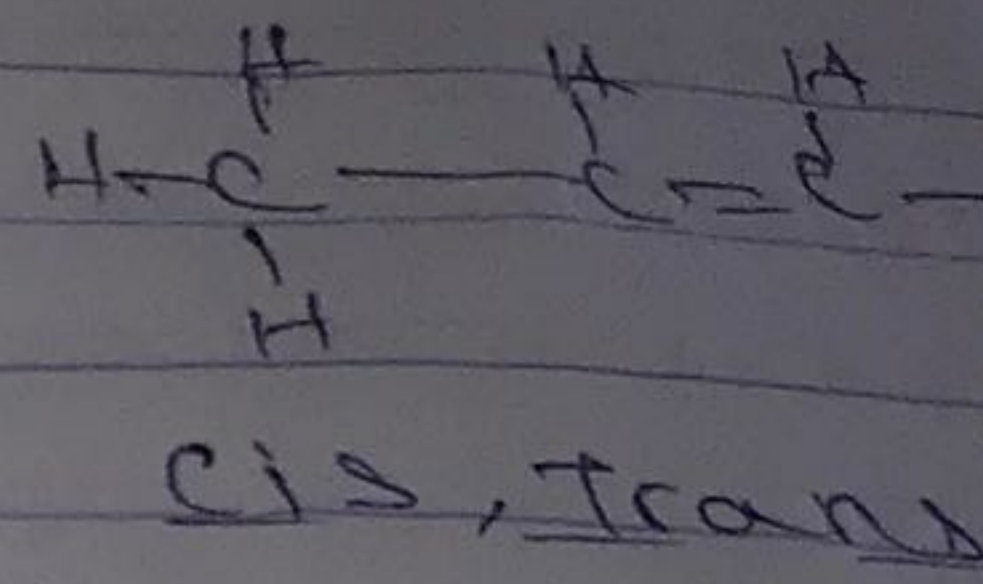 H H H
H-C-C=C-
H
Cis, Trans